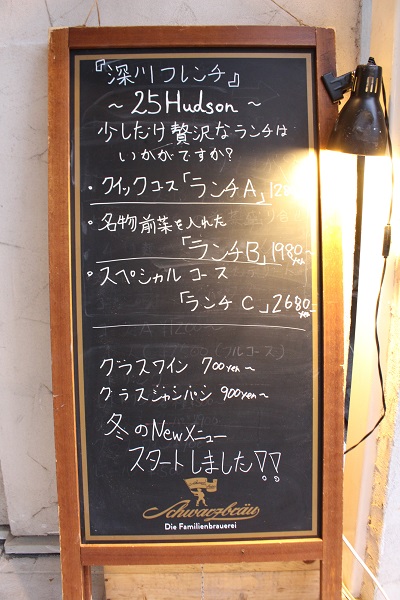 『深川フレンチ』
～25Hudson～
少しだけ贅沢なランチは
いかがですか?
・クイックコース「ランチA」
・名物前菜を入れた
「ランチB」1980yen
・スペシャルコース
「ランチC」2680yen
グラスワイン 700yen～
グラスシャンパン 900yen～
冬のNewメニュー
スタートしました!!
Schwarzbräu
Die Familienbrauerei